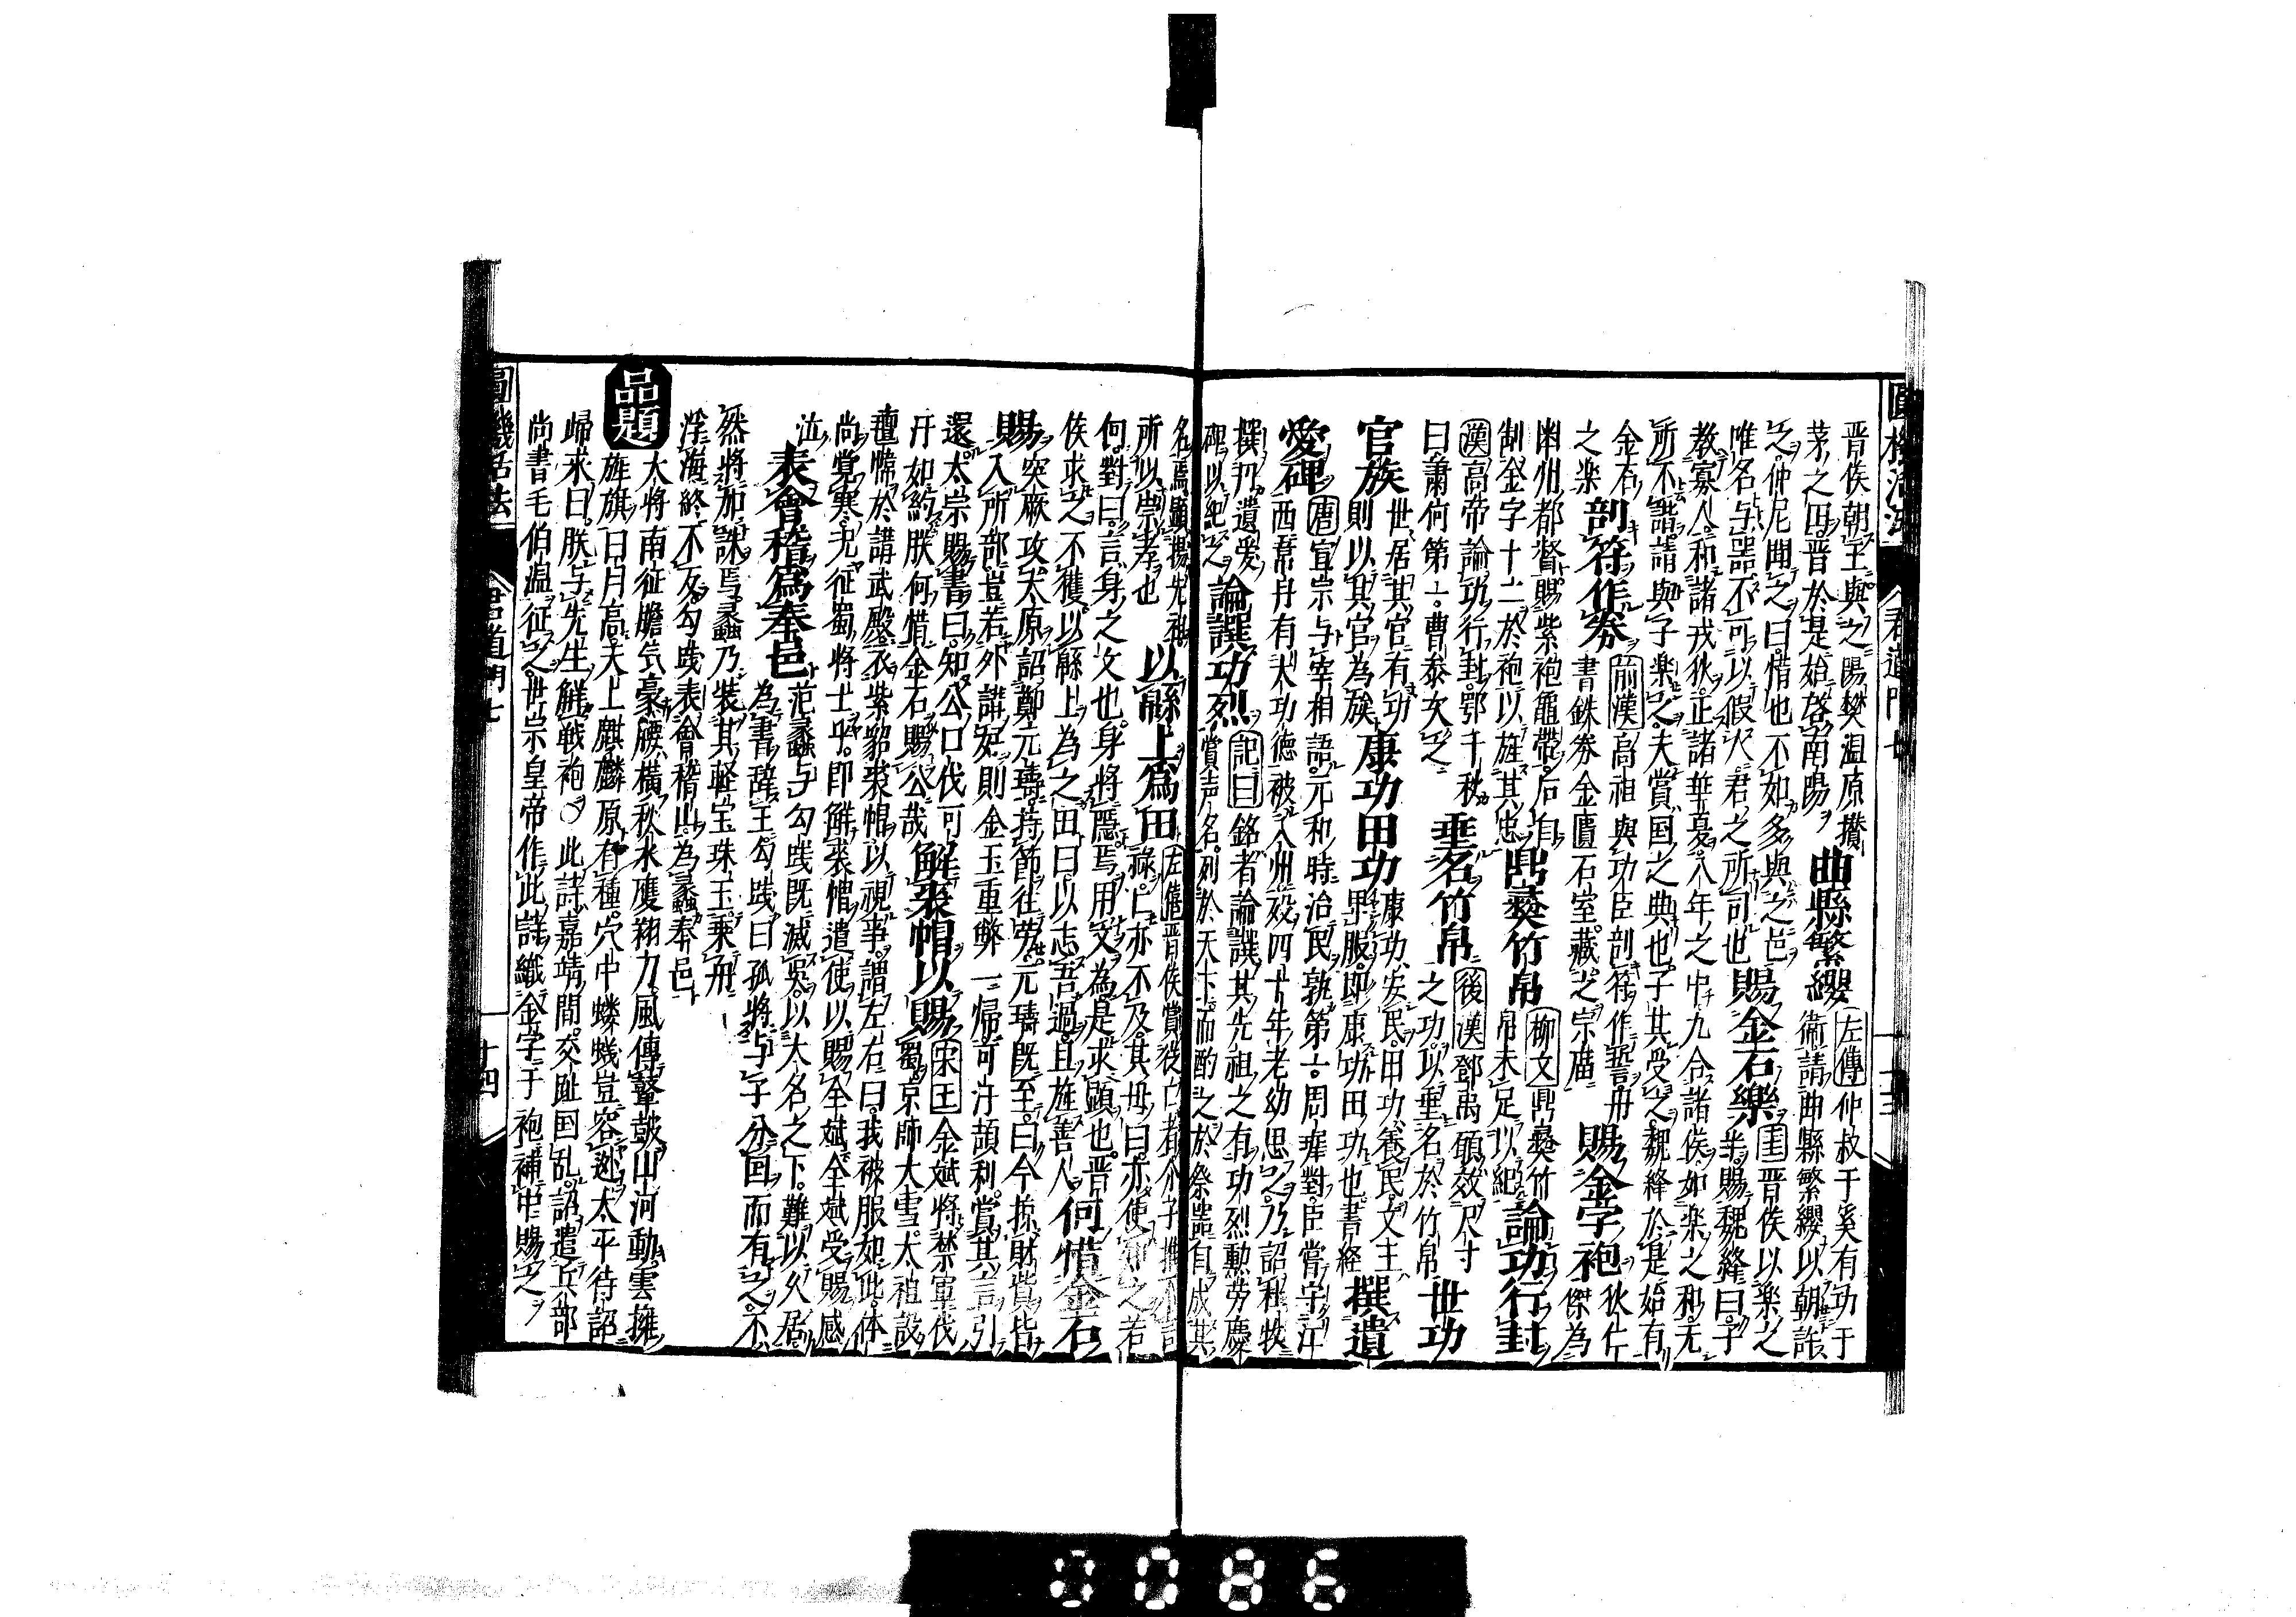 晋侯朝王與之陽樊温原攢
茅之田晋於是始啓南陽
曲縣繁纓
左傳仲叔于奚有功于
衛請曲縣繁纓以朝許
之仲尼聞之曰惜也不如多與之邑
唯名与器不可以假人君之所司也
賜金石樂
国晋侯以楽之
半賜魏絳曰子
教寡人和諸戎狄正諸華夏八年之中九合諸侯如楽之和无
所不諧請與子楽之夫賞国之典也子其受之魏絳於是始有
金石
之楽
剖符作券
前漢高祖與功臣剖符作誓丹
書鉄券金匱石室藏之宗庿
賜金字袍
狄仁
傑為
幽州都督賜紫袍龜帶后自
制金字十二於袍以旌其忠
鼎彜竹帛
柳文鼎彜竹
帛未足以紀
論功行封
漢高帝論功行封鄂千秋
曰蕭何第一曹参次之
垂名竹帛
後漢鄧禹願效尺寸
之功以垂名於竹帛
世功
官族
世居其官有功
則以其官為族
康功田功
康功安民田功養民文王
卑服即康功田功也書経
撰遺
愛碑
唐宣宗与宰相語元和時治民孰第一周墀對臣嘗守江
西韋丹有大功德被八州殁四十年老幼思之乃詔
撰丹遺愛
碑以紀之
論譔功烈
記曰銘者論譔其先祖之有功烈勲劳慶
賞声名列於天下而酌之於祭器自成其
名焉顯揚先祖
所以崇孝也
以緜上爲田
左傳晋侯賞従亡者介子推不言
禄亡亦不及其母曰亦使知之若
何對曰言身之文也身将隠焉用文為是求顕也晋
侯求之不獲以緜上為之田曰以志吾過且旌善人
何惜金石
賜突厥攻太原詔鄭元璹持節往劳元璹既至曰今掠財貲皆
入所部豈若外講好則金玉重幣一帰可汗頡利賞其言引
還太宗賜書曰知公口伐可
汗如約朕何惜金石賜公哉
解裘帽以賜
宋王全斌将禁軍伐
蜀京師大雪太祖設
氊帷於講武殿衣紫貂裘帽以視事謂左右曰我被服如此体
尚覚寒况征蜀将士乎即解裘帽遣使以賜全斌全斌受賜感
泣
表會稽爲奉邑
范蠡与勾践既滅吴以大名之下難以久居
為書辞王勾践曰孤将与子分国而有之不
然将加誅焉蠡乃装其軽宝珠玉乗舟
浮海終不反勾践表會稽山為蠡奉邑
品題
大将南征膽気豪腰横秋水鴈翎刀風傳鼙皷山河動雲擁
旌旗日月高天上麒麟原有種穴中螻蟻豈容逃太平待詔
帰来日朕与先生觧戦袍○此詩嘉靖間交趾国乱詔遣兵部
尚書毛伯温征之世宗皇帝作此詩織金字于袍補中賜之
圓機活法
君道門七
十三
圓機活法
君道門七
十四
0086